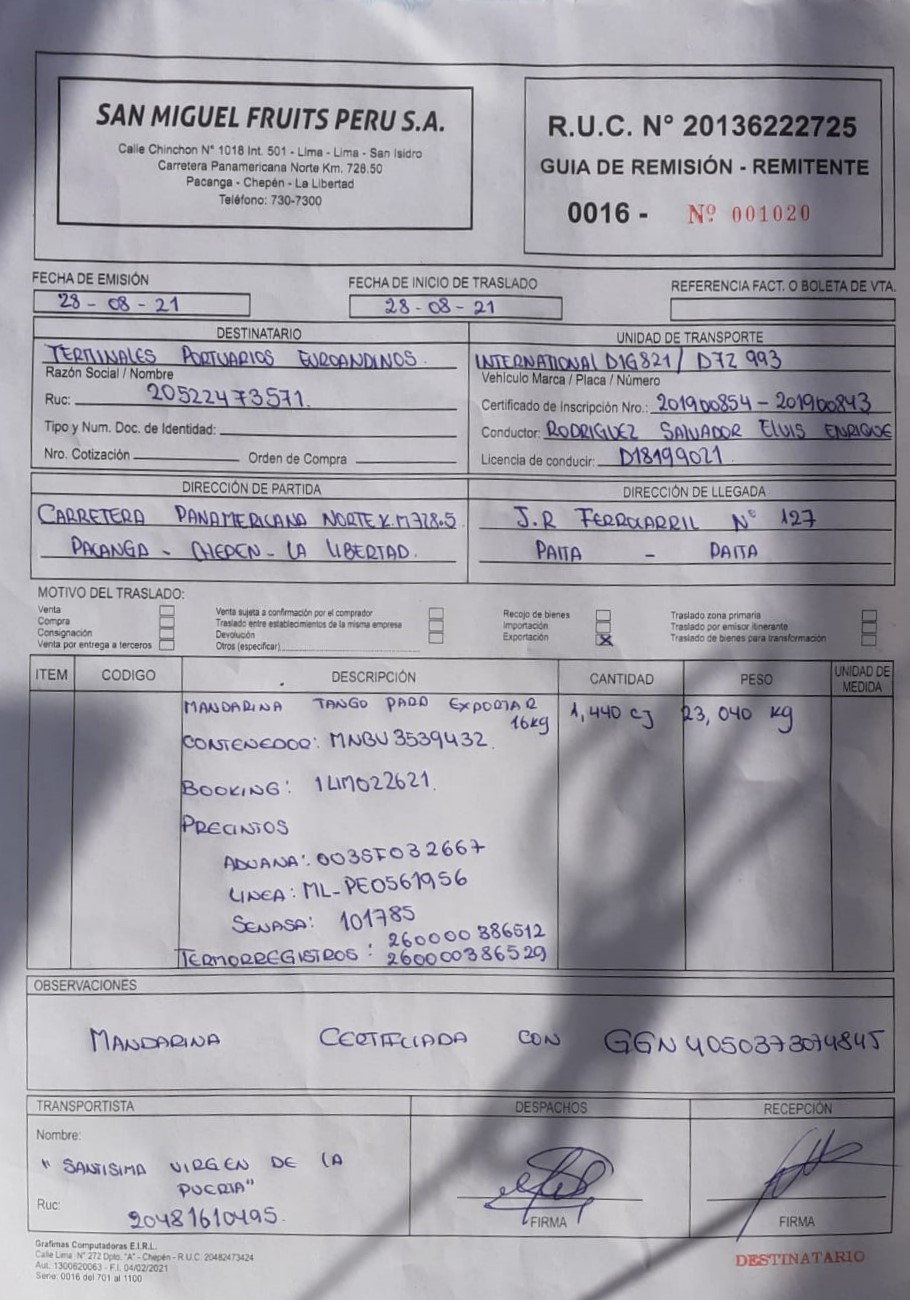 SAN MIGUEL FRUITS PERU S.A.
Calle Chinchon N° 1018 Int. 501 - Lima - Lima - San Isidro
Carretera Panamericana Norte Km. 728.50
Pacanga - Chepén - La Libertad
Teléfono: 730-7300
R.U.C. N° 20136222725
GUIA DE REMISIÓN - REMITENTE
0016 - Nº 001020
FECHA DE EMISIÓN
28 - 08 - 21
FECHA DE INICIO DE TRASLADO
28 - 08 - 21
REFERENCIA FACT. O BOLETA DE VTA.
DESTINATARIO
TERMINALES PORTUARIOS EUROANDINOS.
Razón Social / Nombre
Ruc: 20522473571.
Tipo y Num. Doc. de Identidad:
Nro. Cotización Orden de Compra
UNIDAD DE TRANSPORTE
INTERNATIONAL D1G821 / D7Z 993
Vehículo Marca / Placa / Número
Certificado de Inscripción Nro.: 201900854 - 201900843
Conductor: RODRIGUEZ SALVADOR ELVIS ENRIQUE
Licencia de conducir: D18199021
DIRECCIÓN DE PARTIDA
CARRETERA PANAMERICANA NORTE K.M 728.5
PACANGA - CHEPEN - LA LIBERTAD.
DIRECCIÓN DE LLEGADA
J.R FERROCARRIL N° 127
PAITA - PAITA
MOTIVO DEL TRASLADO:
Venta
Compra
Consignación
Venta por entrega a terceros
Venta sujeta a confirmación por el comprador
Traslado entre establecimientos de la misma empresa
Devolución
Otros (especificar)
Recojo de bienes
Importación
Exportación X
Traslado zona primaria
Traslado por emisor itinerante
Traslado de bienes para transformación
ITEM CODIGO DESCRIPCIÓN CANTIDAD PESO UNIDAD DE MEDIDA
MANDARINA TANGO PARA EXPORTAR 16kg 1,440 CJ 23,040 kg
CONTENEDOR: MNBU 3539432.
BOOKING: 1LIM022621.
PRECINTOS
ADUANA: 003SF032667
LINEA: ML-PE0561956
SENASA: 101785
TERMORREGISTROS: 260000386512
260000386529
OBSERVACIONES
MANDARINA CERTIFICADA CON GGN 4050373074845
TRANSPORTISTA
Nombre:
" SANTISIMA VIRGEN DE LA
PUERTA"
Ruc: 20481610495.
DESPACHOS
FIRMA
RECEPCIÓN
FIRMA
Grafimas Computadoras E.I.R.L.
Calle Lima N° 272 Dpto. "A" - Chepén - R.U.C. 20482473424
Aut. 1300620063 - F.I. 04/02/2021
Serie: 0016 del 701 al 1100
DESTINATARIO